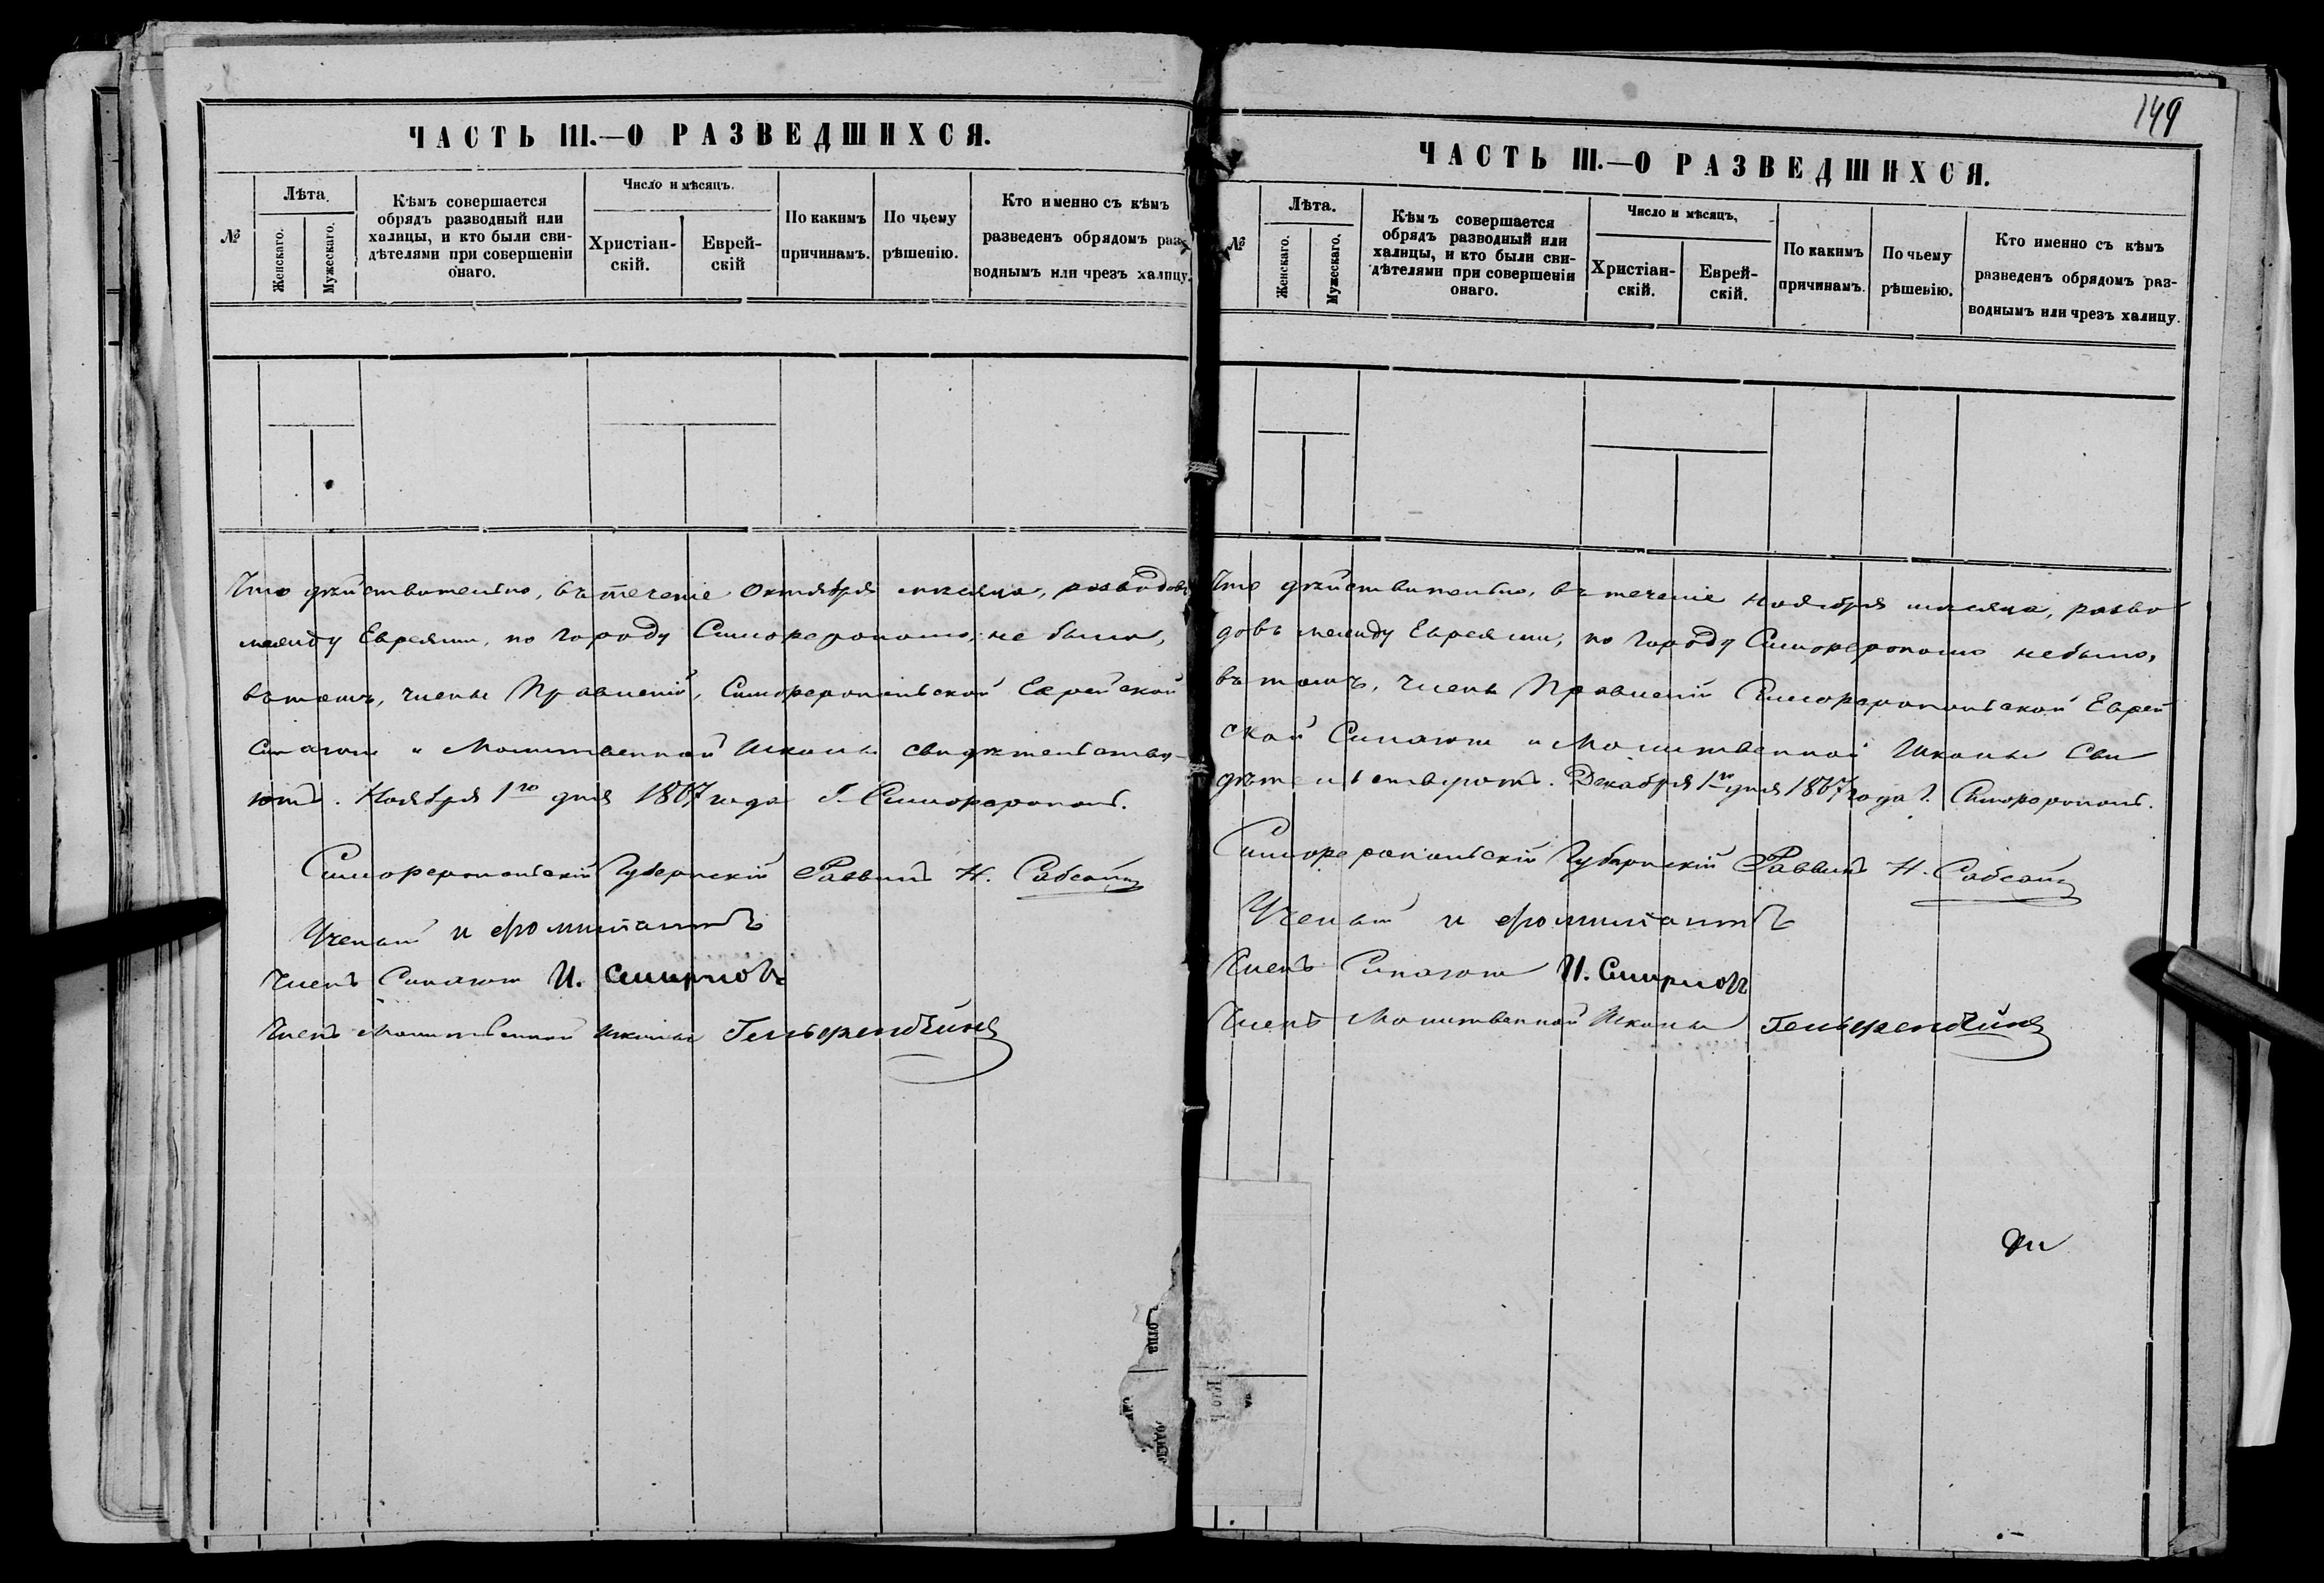 ЧАСТЬ III.—О РАЗВЕДШИХСЯ.
№
Лѣта.
Женскаго.
Мужескаго.
Кѣмъ совершается
обрядъ разводный или
халицы, и кто были сви-
дѣтелями при совершеніи
онаго.
Число и мѣсяцъ.
Христіан-
скій.
Еврей-
скій
По какимъ
причинамъ.
По чьему
рѣшенію.
Кто именно съ кѣмъ
разведенъ обрядомъ раз-
воднымъ или чрезъ халицу.
Что дѣйствительно, въ теченіе Октября мѣсяца, разводовъ
между Евреями, по городу Симферополю, не было,
въ томъ, члены Правленій, Симферопольской Еврейской
Синагоги и Молитвенной Школы свидѣтельству-
ютъ. Ноября 1го дня 1867 года Г. Симферополь.
Симферопольскій Губернскій Раввинъ Н.
Ученый и
Членъ Синагоги И. Смирновъ
Членъ Молитвенной Школы
149
ЧАСТЬ III.—О РАЗВЕДШИХСЯ.
№
Лѣта.
Женскаго.
Мужескаго.
Кѣмъ совершается
обрядъ разводный или
халицы, и кто были сви-
дѣтелями при совершеніи
онаго.
Число и мѣсяцъ.
Христіан-
скій.
Еврей-
скій.
По какимъ
причинамъ.
По чьему
рѣшенію.
Кто именно съ кѣмъ
разведенъ обрядомъ раз-
воднымъ или чрезъ халицу.
Что дѣйствительно, въ теченіе Ноября мѣсяца, разво
довъ между Евреями, по городу Симферополю небыло,
въ томъ, Члены Правленій Симферопольской Еврей
ской Синагоги и Молитвенной Школы Сви
дѣтельствуютъ. Декабря 1го дня 1867 года Г. Симферополь.
Симферопольскій Губернскій Раввинъ Н.
Ученый и
Членъ Синагоги И. Смирновъ
Членъ Молитвенной Школы